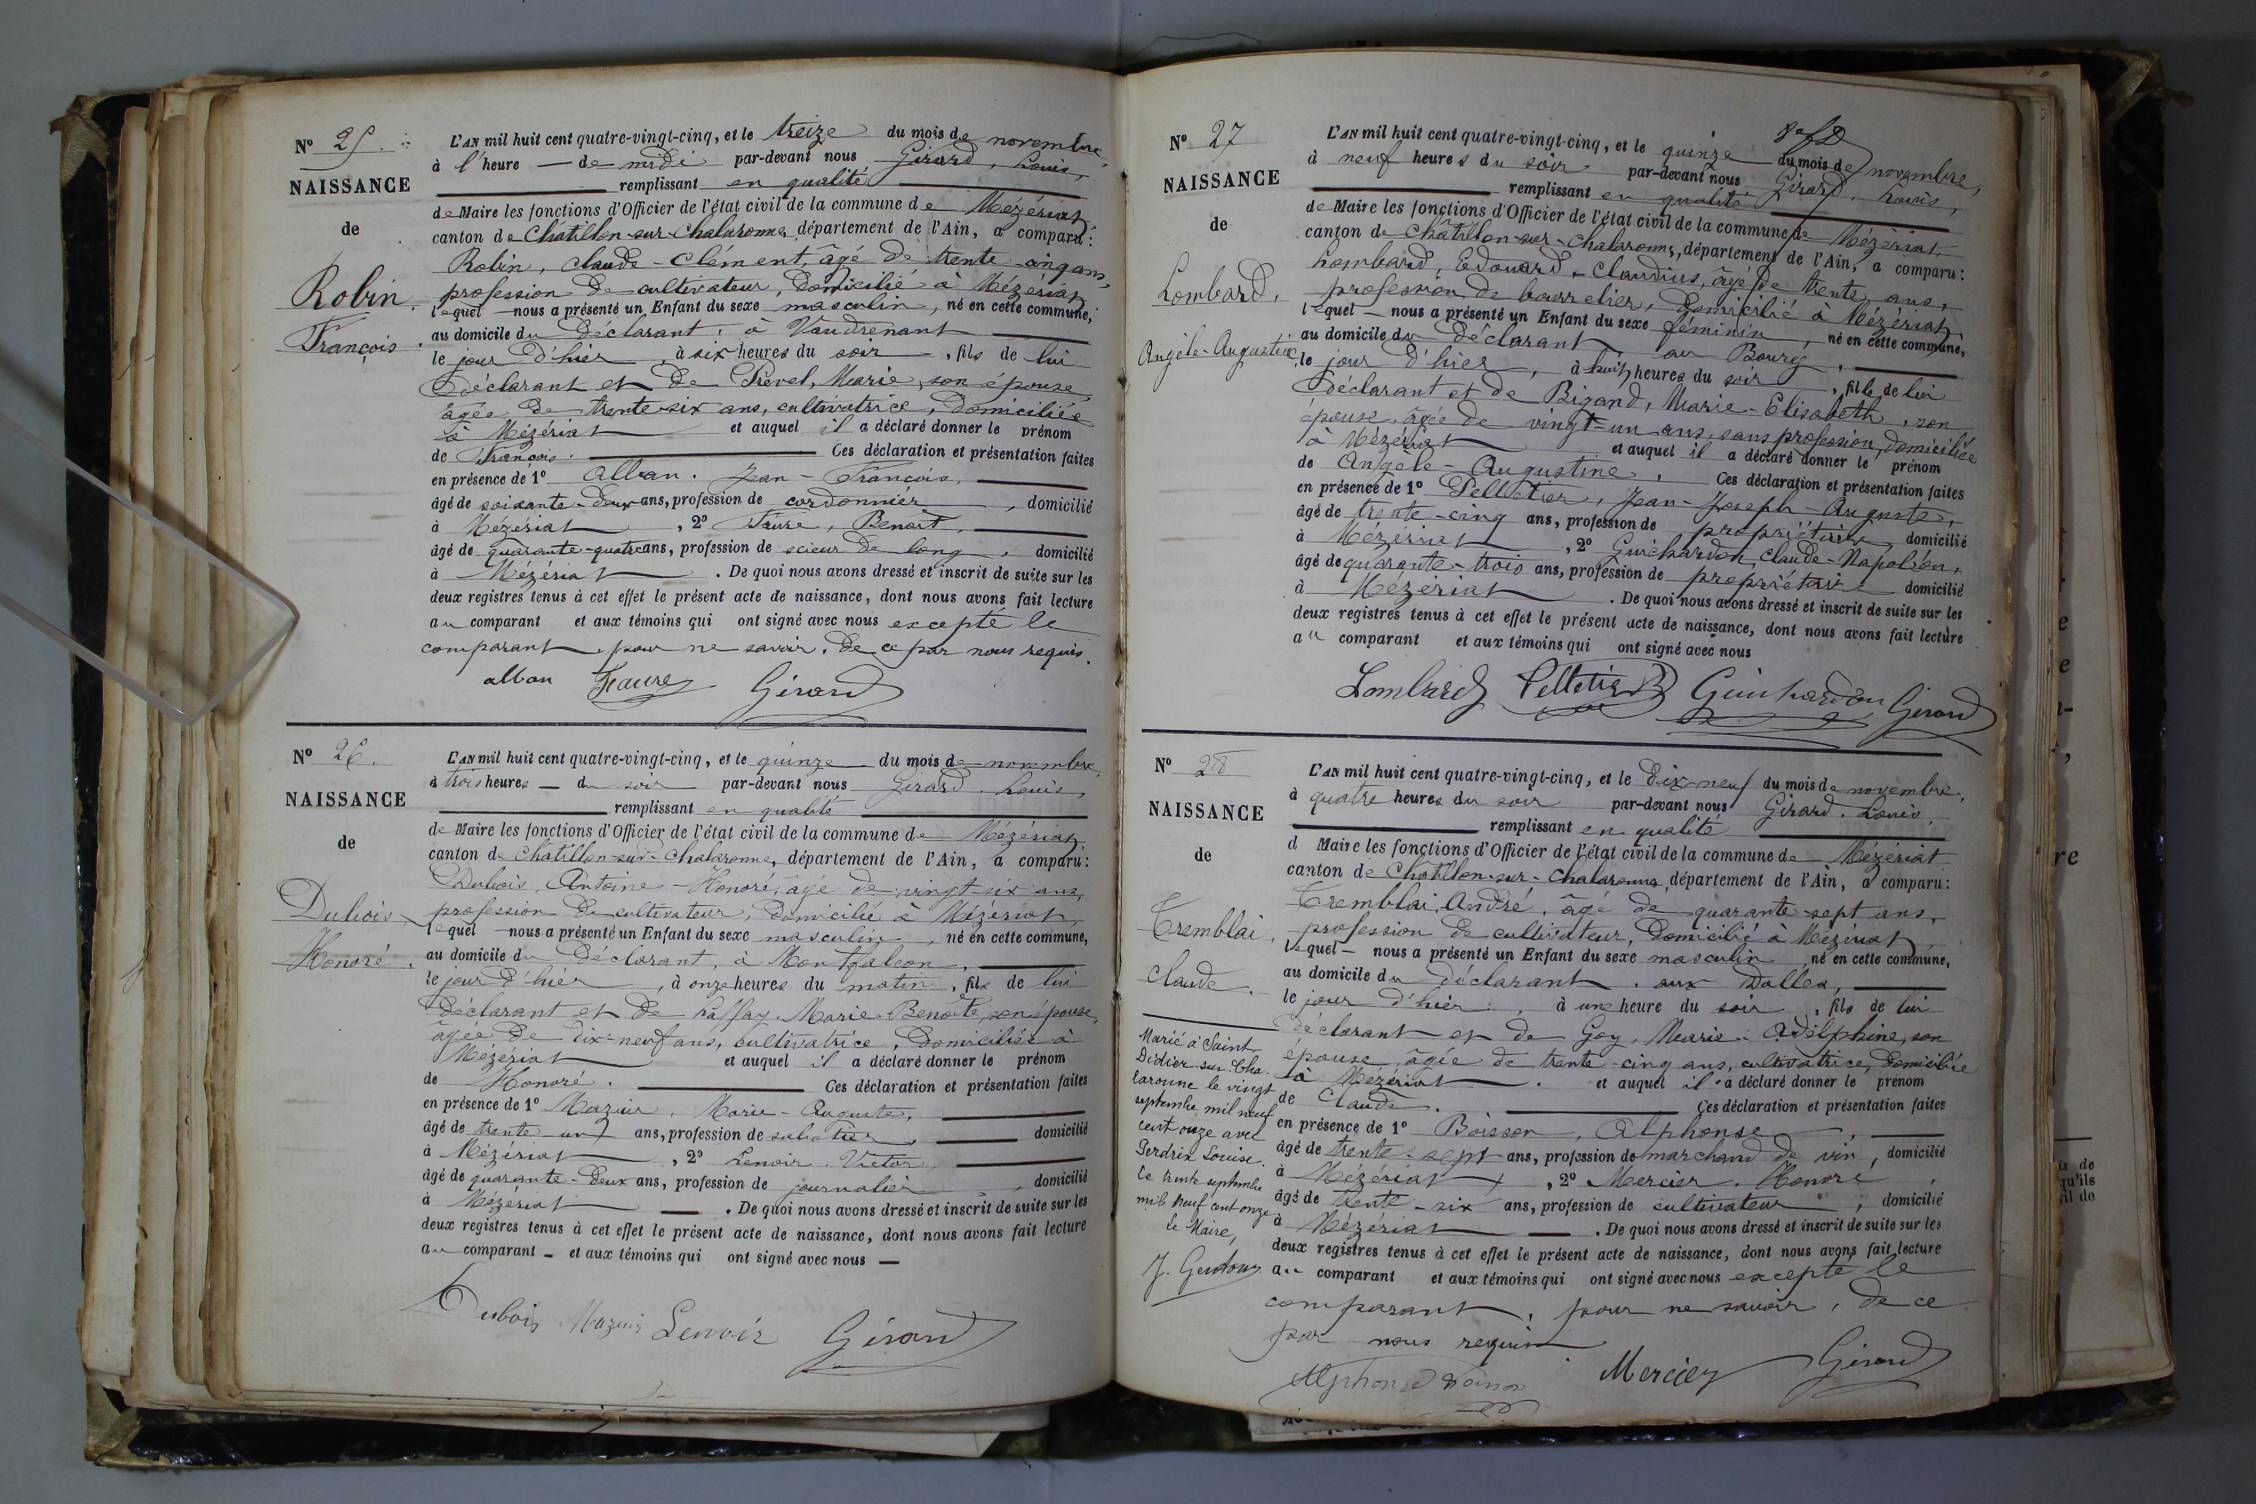 N° 25
NAISSANCE
de
Robin
François.
L'AN mil huit cent quatre-vingt-cinq, et le treize du mois de novembre,
à l'heure de midi par-devant nous Girard, Louis,
remplissant en qualité
de Maire les fonctions d'Officier de l'état civil de la commune de Mézériat
canton de Châtillon-sur-Chalaronne, département de l'Ain, a comparu:
Robin, Claude-Clément, âgé de trente-cinq ans,
profession de cultivateur, domicilié à Mézériat
lequel nous a présenté un Enfant du sexe masculin, né en cette commune,
au domicile du déclarant, à Vaudrenant
le jour d'hier, à six heures du soir, fils de lui
déclarant et de Prevel, Marie, son épouse,
âgée de trente-six ans, cultivatrice, domiciliée
à Mézériat et auquel il a déclaré donner le prénom
de François. Ces déclaration et présentation faites
en présence de 1° Alban, Jean-François,
âgé de soixante-deux ans, profession de cordonnier, domicilié
à Mézériat, 2° Faure, Benoit,
âgé de quarante-quatre ans, profession de scieur de long, domicilié
à Mézériat. De quoi nous avons dressé et inscrit de suite sur les
deux registres tenus à cet effet le présent acte de naissance, dont nous avons fait lecture
au comparant et aux témoins qui ont signé avec nous excepté le
comparant, pour ne savoir, de ce par nous requis.
alban Faure Girard
N° 26.
NAISSANCE
de
Dubois
Honoré.
L'AN mil huit cent quatre-vingt-cinq, et le quinze du mois de novembre,
à trois heures du soir par-devant nous Girard, Louis,
remplissant en qualité
de Maire les fonctions d'Officier de l'état civil de la commune de Mézériat
canton de Châtillon-sur-Chalaronne, département de l'Ain, a comparu:
Dubois, Antoine-Honoré, âgé de vingt-six ans,
profession de cultivateur, domicilié à Mézériat,
lequel nous a présenté un Enfant du sexe masculin, né en cette commune,
au domicile du déclarant, à Montfalcon,
le jour d'hier, à onze heures du matin, fils de lui
déclarant et de Laffay, Marie Benoîte, son épouse,
âgée de dix-neuf ans, cultivatrice, domiciliée à
Mézériat et auquel il a déclaré donner le prénom
de Honoré. Ces déclaration et présentation faites
en présence de 1° Mazuir, Marie-Auguste,
âgé de trente-un ans, profession de sabotier, domicilié
à Mézériat, 2° Lenoir, Victor,
âgé de quarante-deux ans, profession de journalier, domicilié
à Mézériat. De quoi nous avons dressé et inscrit de suite sur les
deux registres tenus à cet effet le présent acte de naissance, dont nous avons fait lecture
au comparant et aux témoins qui ont signé avec nous
Dubois Mazuir Lenoir Girard
N° 27
NAISSANCE
de
Lombard,
Angèle-Augustine
L'AN mil huit cent quatre-vingt-cinq, et le quinze du mois de novembre,
à neuf heures du soir par-devant nous Girard, Louis,
remplissant en qualité
de Maire les fonctions d'Officier de l'état civil de la commune de Mézériat
canton de Châtillon-sur-Chalaronne, département de l'Ain, a comparu:
Lombard, Edouard-Claudius, âgé de trente ans,
profession de bourrelier, domicilié à Mézériat,
lequel nous a présenté un Enfant du sexe féminin, né en cette commune,
au domicile du déclarant au Bourg,
le jour d'hier, à huit heures du soir, fille de lui
déclarant et de Bigand, Marie-Elisabeth, son
épouse, âgée de vingt-un ans, sans profession, domiciliée
à Mézériat et auquel il a déclaré donner le prénom
de Angèle-Augustine. Ces déclaration et présentation faites
en présence de 1° Pelletier, Jean-Joseph-Auguste,
âgé de trente-cinq ans, profession de propriétaire domicilié
à Mézériat, 2° Guichardon, Claude-Napoléon,
âgé de quarante-trois ans, profession de propriétaire domicilié
à Mézériat. De quoi nous avons dressé et inscrit de suite sur les
deux registres tenus à cet effet le présent acte de naissance, dont nous avons fait lecture
au comparant et aux témoins qui ont signé avec nous
Lombard Pelletier Guichardon Girard
N° 28
NAISSANCE
de
Tremblai,
Claude.
Marié à Saint
Didier-sur-Cha-
laronne le vingt
septembre mil neuf
cent onze avec
Perdrix Louise.
Le trente septembre
mil neuf cent onze
le Maire,
L'AN mil huit cent quatre-vingt-cinq, et le dix-neuf du mois de novembre,
à quatre heures du soir par-devant nous Girard, Louis,
remplissant en qualité
d Maire les fonctions d'Officier de l'état civil de la commune de Mézériat
canton de Châtillon-sur-Chalaronne, département de l'Ain, a comparu:
Tremblai, André, âgé de quarante-sept ans,
profession de cultivateur, domicilié à Mézériat
lequel nous a présenté un Enfant du sexe masculin, né en cette commune,
au domicile du déclarant, aux Dalles,
le jour d'hier, à une heure du soir, fils de lui
déclarant et de Goy, Marie-Adelphine, son
épouse, âgée de trente-cinq ans, cultivatrice, domiciliée
à Mézériat. et auquel il a déclaré donner le prénom
de Claude. Ces déclaration et présentation faites
en présence de 1° Boisson, Alphonse,
âgé de trente-sept ans, profession de marchand de vin, domicilié
à Mézériat, 2° Mercier, Honoré,
âgé de trente-six ans, profession de cultivateur, domicilié
à Mézériat. De quoi nous avons dressé et inscrit de suite sur les
deux registres tenus à cet effet le présent acte de naissance, dont nous avons fait lecture
au comparant et aux témoins qui ont signé avec nous excepté le
comparant, pour ne savoir, de ce
par nous requis
Alphonse Boisson Mercier Girard